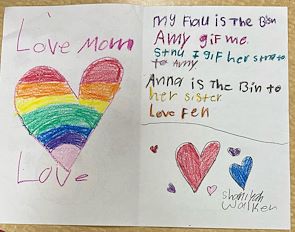 Love Mom
Love
My Fiau is The Bisn
Amy gif me.
Stnu I gif her
to Amy
Anna is The Bin to
her sister
Love Feh
Walker